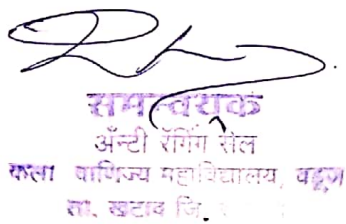 समन्वयक
अँन्टी रॅगिंग सेल
कला वाणिज्य महाविद्यालय, वडूज
ता. खटाव जि.